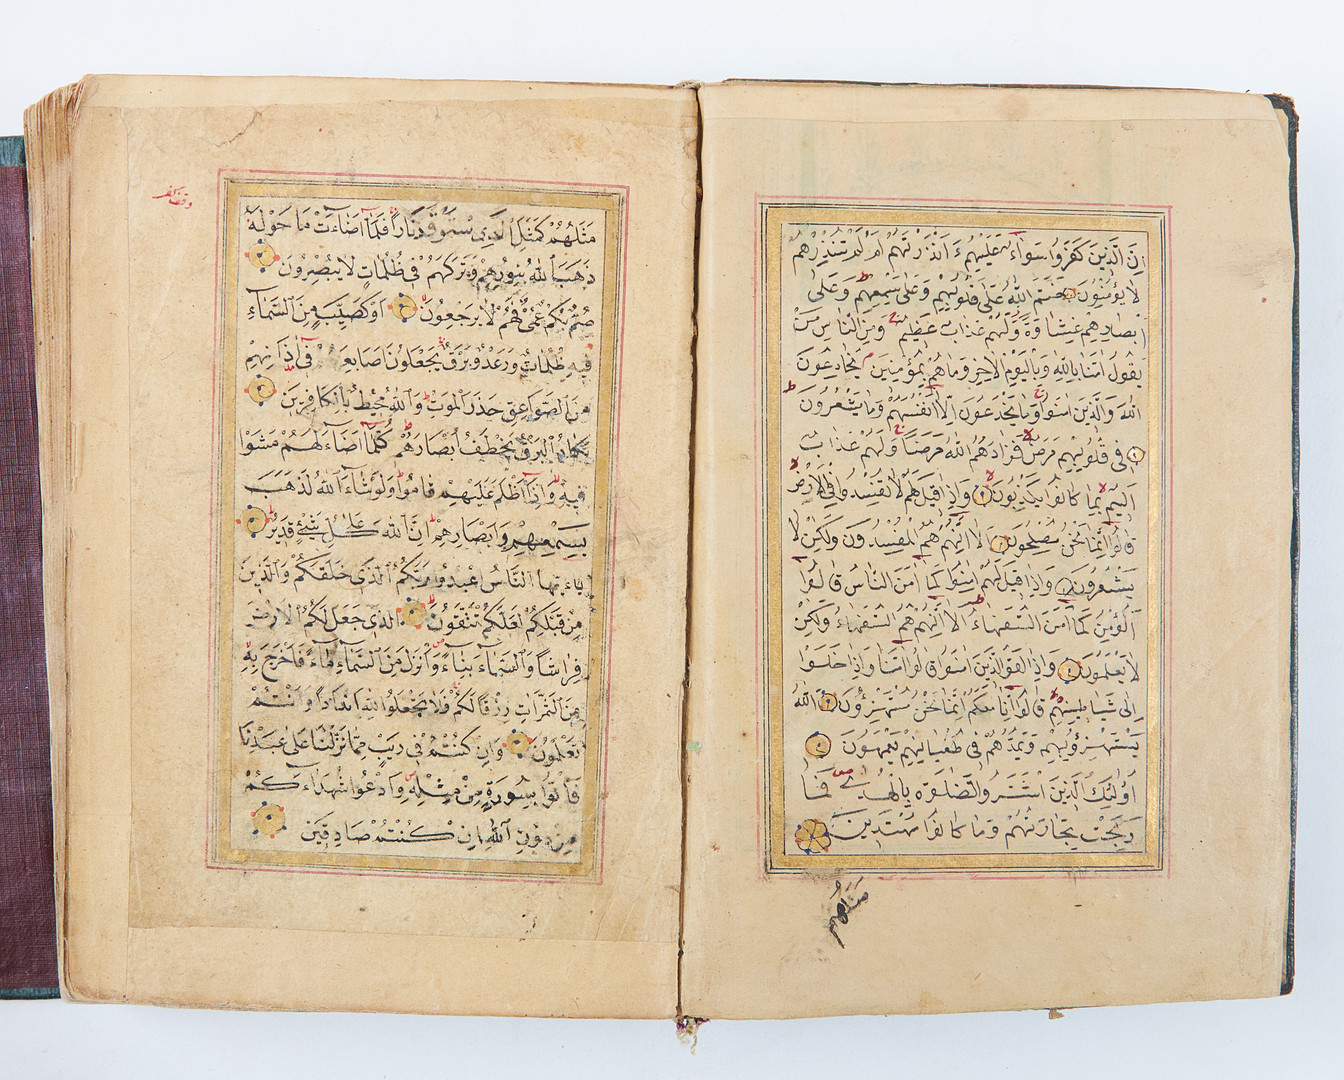 إِنَّ الَّذِينَ كَفَرُوا سَوَاءٌ عَلَيْهِمْ ءَأَنْذَرْتَهُمْ أَمْ لَمْ تُنْذِرْهُمْ
لَا يُؤْمِنُونَ خَتَمَ اللَّهُ عَلَى قُلُوبِهِمْ وَعَلَى سَمْعِهِمْ وَعَلَى
أَبْصَارِهِمْ غِشَاوَةٌ وَلَهُمْ عَذَابٌ عَظِيمٌ وَمِنَ النَّاسِ مَنْ
يَقُولُ آمَنَّا بِاللَّهِ وَبِالْيَوْمِ الْآخِرِ وَمَا هُمْ بِمُؤْمِنِينَ يُخَادِعُونَ
اللَّهَ وَالَّذِينَ آمَنُوا وَمَا يَخْدَعُونَ إِلَّا أَنْفُسَهُمْ وَمَا يَشْعُرُونَ
فِي قُلُوبِهِمْ مَرَضٌ فَزَادَهُمُ اللَّهُ مَرَضًا وَلَهُمْ عَذَابٌ
أَلِيمٌ بِمَا كَانُوا يَكْذِبُونَ وَإِذَا قِيلَ لَهُمْ لَا تُفْسِدُوا فِي الْأَرْضِ
قَالُوا إِنَّمَا نَحْنُ مُصْلِحُونَ أَلَا إِنَّهُمْ هُمُ الْمُفْسِدُونَ وَلَكِنْ لَا
يَشْعُرُونَ وَإِذَا قِيلَ لَهُمْ آمِنُوا كَمَا آمَنَ النَّاسُ قَالُوا
أَنُؤْمِنُ كَمَا آمَنَ السُّفَهَاءُ أَلَا إِنَّهُمْ هُمُ السُّفَهَاءُ وَلَكِنْ
لَا يَعْلَمُونَ وَإِذَا لَقُوا الَّذِينَ آمَنُوا قَالُوا آمَنَّا وَإِذَا خَلَوْا
إِلَى شَيَاطِينِهِمْ قَالُوا إِنَّا مَعَكُمْ إِنَّمَا نَحْنُ مُسْتَهْزِؤُنَ اللَّهُ
يَسْتَهْزِؤُ بِهِمْ وَيَمُدُّهُمْ فِي طُغْيَانِهِمْ يَعْمَهُونَ
أُولَئِكَ الَّذِينَ اشْتَرَوُا الضَّلَالَةَ بِالْهُدَى فَمَا
رَبِحَتْ تِجَارَتُهُمْ وَمَا كَانُوا مُهْتَدِينَ
مَثَلُهُمْ
مَثَلُهُمْ كَمَثَلِ الَّذِي اسْتَوْقَدَ نَارًا فَلَمَّا أَضَاءَتْ مَا حَوْلَهُ
ذَهَبَ اللَّهُ بِنُورِهِمْ وَتَرَكَهُمْ فِي ظُلُمَاتٍ لَا يُبْصِرُونَ
صُمٌّ بُكْمٌ عُمْيٌ فَهُمْ لَا يَرْجِعُونَ أَوْ كَصَيِّبٍ مِنَ السَّمَاءِ
فِيهِ ظُلُمَاتٌ وَرَعْدٌ وَبَرْقٌ يَجْعَلُونَ أَصَابِعَهُمْ فِي آذَانِهِمْ
مِنَ الصَّوَاعِقِ حَذَرَ الْمَوْتِ وَاللَّهُ مُحِيطٌ بِالْكَافِرِينَ
يَكَادُ الْبَرْقُ يَخْطَفُ أَبْصَارَهُمْ كُلَّمَا أَضَاءَ لَهُمْ مَشَوْا
فِيهِ وَإِذَا أَظْلَمَ عَلَيْهِمْ قَامُوا وَلَوْ شَاءَ اللَّهُ لَذَهَبَ
بِسَمْعِهِمْ وَأَبْصَارِهِمْ إِنَّ اللَّهَ عَلَى كُلِّ شَيْءٍ قَدِيرٌ
يَاءَيُّهَا النَّاسُ اعْبُدُوا رَبَّكُمُ الَّذِي خَلَقَكُمْ وَالَّذِينَ
مِنْ قَبْلِكُمْ لَعَلَّكُمْ تَتَّقُونَ الَّذِي جَعَلَ لَكُمُ الْأَرْضَ
فِرَاشًا وَالسَّمَاءَ بِنَاءً وَأَنْزَلَ مِنَ السَّمَاءِ مَاءً فَأَخْرَجَ بِهِ
مِنَ الثَّمَرَاتِ رِزْقًا لَكُمْ فَلَا تَجْعَلُوا لِلَّهِ أَنْدَادًا وَأَنْتُمْ
تَعْلَمُونَ وَإِنْ كُنْتُمْ فِي رَيْبٍ مِمَّا نَزَّلْنَا عَلَى عَبْدِنَا
فَأْتُوا بِسُورَةٍ مِنْ مِثْلِهِ وَادْعُوا شُهَدَاءَكُمْ
مِنْ دُونِ اللَّهِ إِنْ كُنْتُمْ صَادِقِينَ